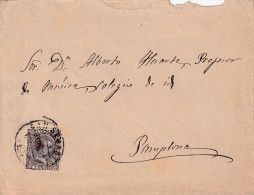 Sor. Dn. Alberto Huarte, Profesor
de Música, Colegio de id
Pamplona